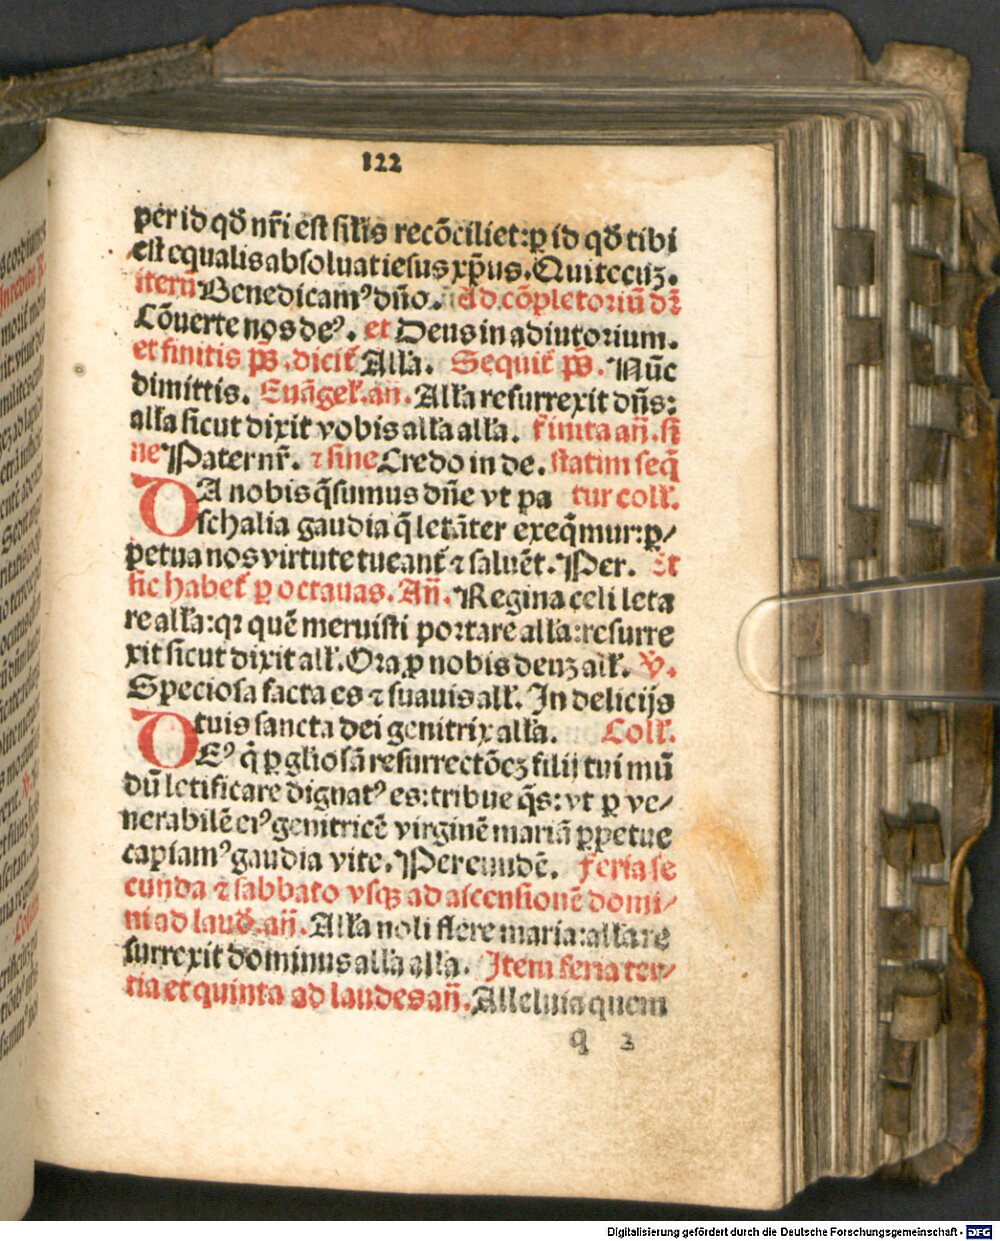 122
per id qð nr̃i ẽst silis̃ recõciliet: ꝑ id qð tibi
est equalis absoluat iesus xp̃us. Qui tecũꝫ.
iterũ Benedicamꝰ dño. Ad cõpletoriũ dr̃
Cõuerte nos deꝰ. et Deus in adiutorium.
et finitis ps̃. dicit̃ Alla. Sequit̃ ps̃. Nũc
dimittis. Euãgel̃. añ. All̃a resurrexit dñs:
all̃a sicut dixit vobis all̃a all̃a. finita añ. si
ne Pater nr̃. ⁊ sine Credo in de. statim seq̃
DA nobis q̃sumus dñe vt pa tur coll̃.
schalia gaudia q̃ letãter exeq̃mur: ꝑ/
petua nos virtute tueant̃ ⁊ saluẽt. Per. Et
sic habet̃ ꝑ octauas. Añ. Regina celi leta
re all̃a: qꝛ quẽ meruisti portare all̃a: resurre
xit sicut dixit all̃. Ora ꝓ nobis deuꝫ all̃. ℣.
Speciosa facta es ⁊ suauis all̃. In delicijs
tuis sancta dei genitrix all̃a. Coll̃.
DEꝰ q̃ ꝑ gliosã resurrectõeꝫ filij tui mũ
dũ letificare dignatꝰ es: tribue q̃s: vt ꝑ ve/
nerabilẽ eiꝰ genitricẽ virginẽ mariã ꝑpetue
capiamꝰ gaudia vite. Per eundẽ. Feria se
cunda ⁊ sabbato vsqꝫ ad ascensionẽ domi/
ni ad laud̃. añ. All̃a noli flere maria: all̃a re
surrexit dominus all̃a all̃a. Item feria ter/
tia et quinta ad laudes añ. Alleluia quem
q 2
Digitalisierung gefördert durch die Deutsche Forschungsgemeinschaft - DFG